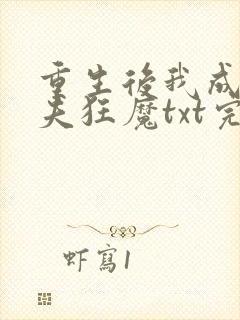 重生後我成
夫狂魔txt完
虾寫1